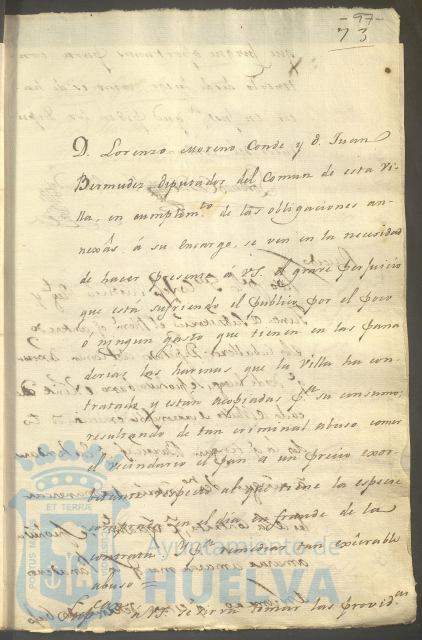 -97-
73
D. Lorenzo Moreno Conde y D. Juan
Bermudez diputados del Comun de esta Vi-
lla, en cumplim.to de las obligaciones an-
nexâs á su encargo, se ven en la necesidad
de hacer presente a VS. el grave perjuicio
que está sufriendo el publico por el poco
o ningun gasto que tienen en las pana
derias las harinas que la Villa ha con-
tratado y estan acopiadas p.a su consumo;
resultando de tan criminal abuso comer
el vecindario el pan a un precio exor-
bitante respecto al que tiene la especie
en el dia, en fraude de la
contrata; y p.a remediar tan exêcrable
abuso =
Supp.can a VS. se sirva tomar las provid.as
PORTUS MARIS
ET TERRAE
Ayuntamiento de
HUELVA